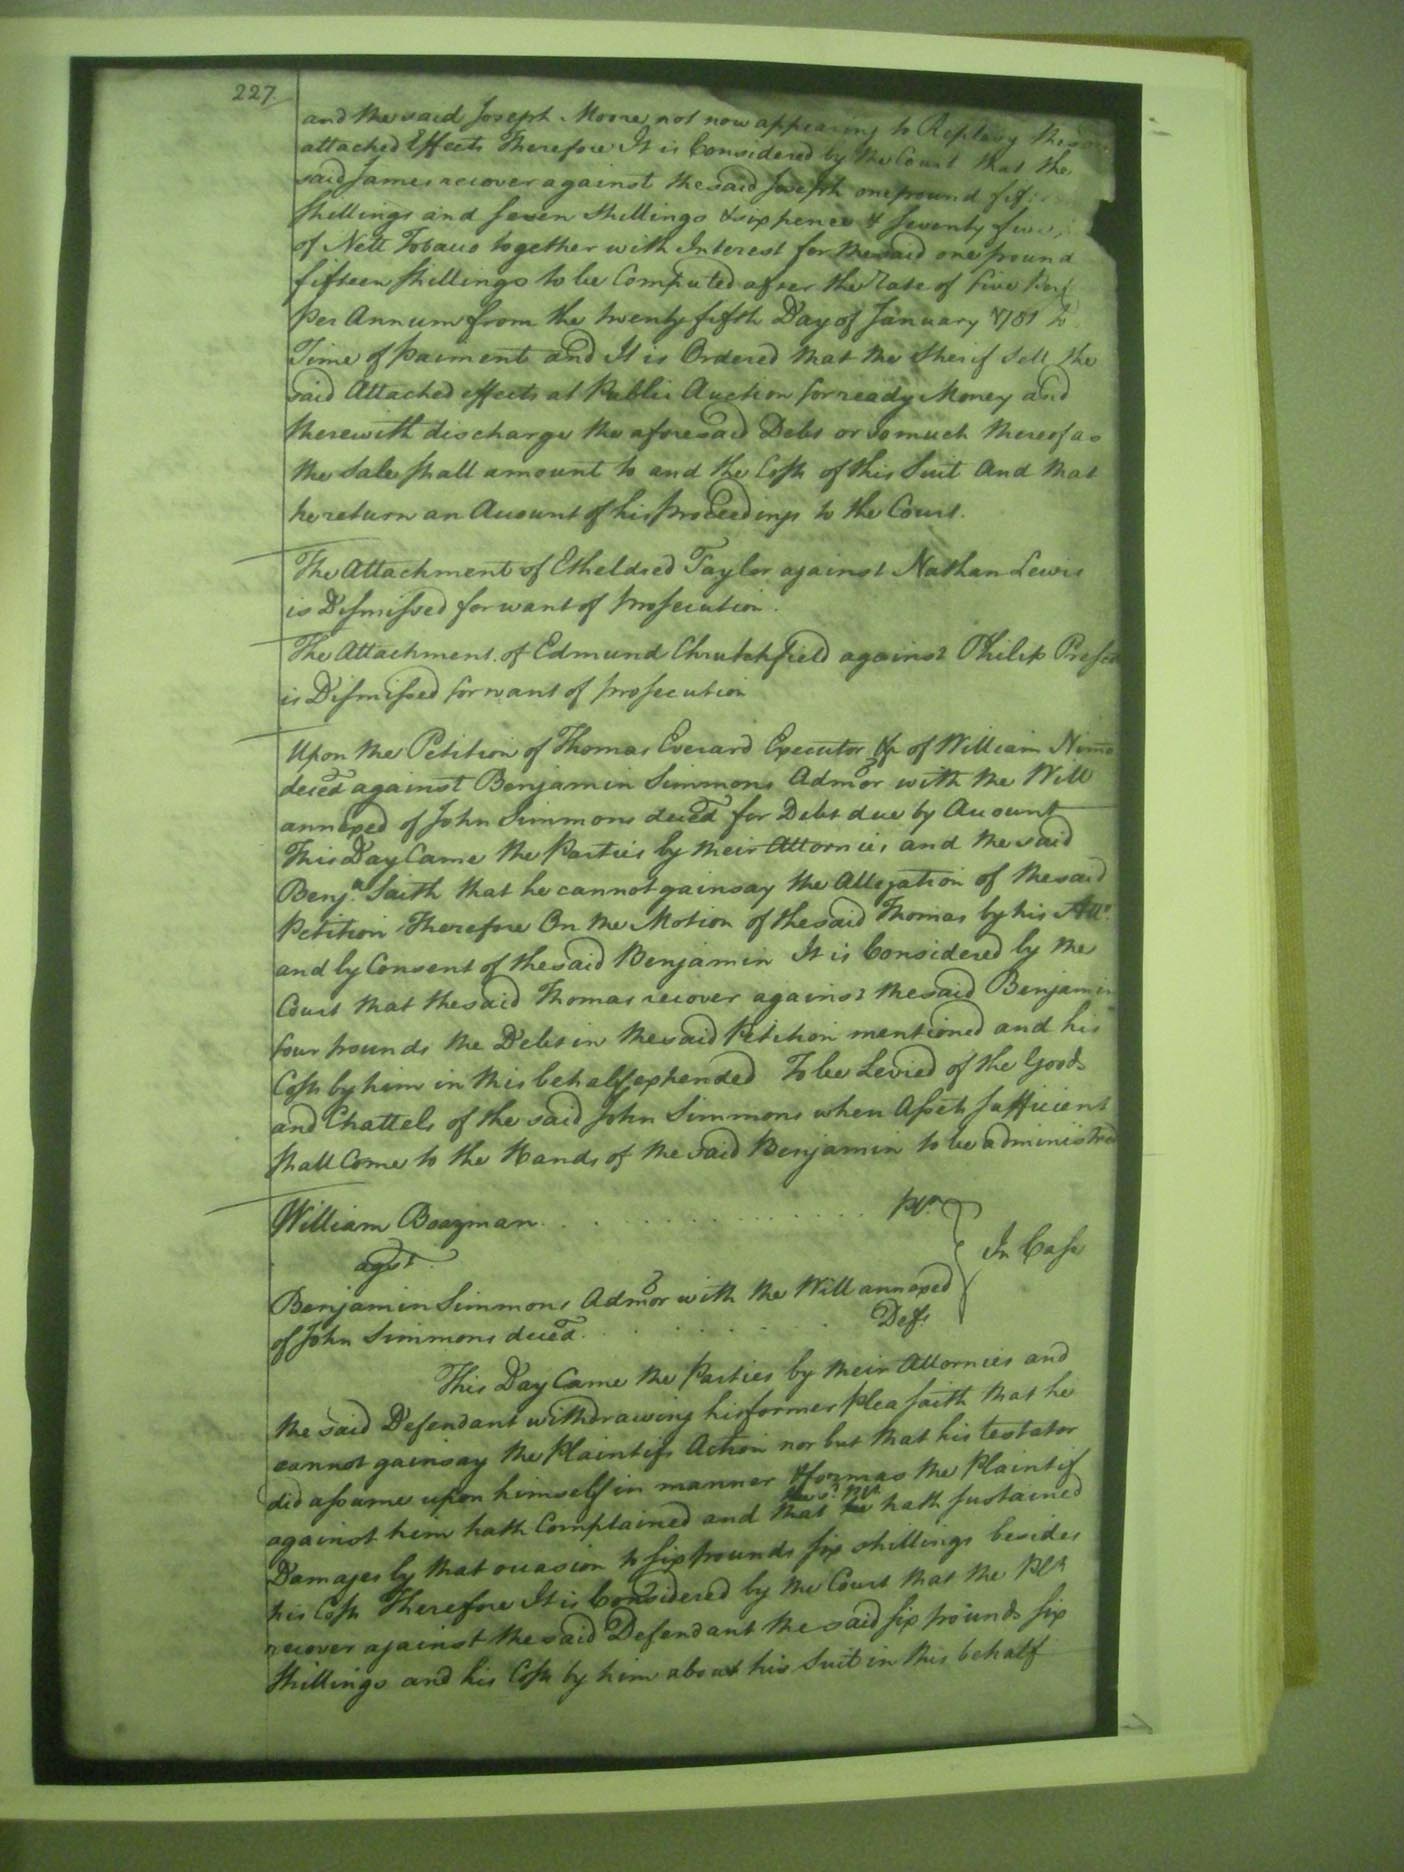 227.
and the said Joseph Moore not now appearing to Replevy the said
attached Effects Therefore It is Considered by the Court that the
said James recover against the said Joseph one pound fif
shillings and seven shillings & sixpence & seventy five
of Nett Tobacco together with Interest for the said one pound
fifteen shillings to be Computed after the Rate of five Per
Per Annum from the twenty fifth Day of January 1781 to
Time of paiment and It is Ordered that the Sherif Sell the
said Attached effects at Public Auction for ready Money and
therewith discharge the aforesaid Debt or so much thereof as
the Sale shall amount to and the Costs of this Suit And that
he return an Account of his proceedings to the Court.
The Attachment of Etheldred Taylor against Nathan Lewis
is Dismissed for want of prosecution.
The Attachment of Edmund Chrutchfield against Philip
is Dismissed for want of prosecution
Upon the Petition of Thomas Everard Executor &c of William Nimo
deced against Benjamin Simmons Admor with the Will
annexed of John Simmons deced for Debt due by Account
This Day Came the Parties by their Attornies and the said
Benja. Saith that he cannot gainsay the Allegation of the said
Petition Therefore On the Motion of the said Thomas by his Atto.
and by Consent of the said Benjamin It is Considered by the
Court that the said Thomas recover against the said Benjamin
four pounds the Debt in the said Petition mentioned and his
Costs by him in this behalf expended To be Levied of the Goods
and Chattels of the said John Simmons when Assets sufficient
shall Come to the Hands of the said Benjamin to be administred
William Boazman . . . . . . . . . . . . . . . Plt.
agst.
In Case
Benjamin Simmons Admor with the Will annexed
of John Simmons deced. . . . . . . . Deft.
This Day Came the Parties by their Attornies and
the said Defendant withdrawing his former plea saith that he
cannot gainsay the Plaintifs Action nor but that his testator
did assume upon himself in manner & form as the Plaintif
the sd. Plt.
against him hath Complained and that he hath sustained
Damages by that occasion to six pounds six shillings besides
his Costs Therefore It is Considered by the Court that the Plt
recover against the said Defendant the said six pounds six
shillings and his Costs by him about his Suit in this behalf